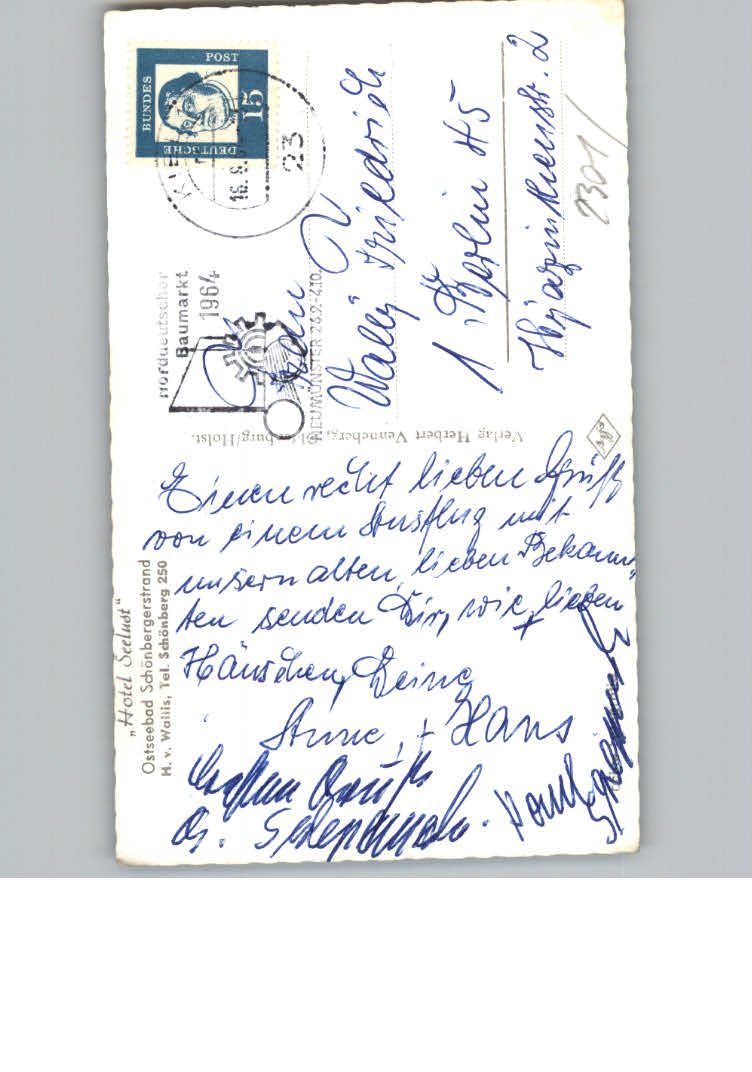 „Hotel Seelust“
Ostseebad Schönbergerstrand
H. v. Wallis, Tel. Schönberg 250
Einen recht lieben Gruß
von einem Ausflug mit
unsern alten, lieben Bekann„
ten senden Dir, wie lieben
Hänschen, Deine
Anne, + Hans
Gruß
Paul
Verlag Herbert Venneberg, Oldenburg/Holst.
DEUTSCHE BUNDES POST
15
KIEL
23
16.9.
Norddeutscher
Baumarkt
1964
NEUMÜNSTER 26.9.-4.10.
Frau
Wally Friedrich
1 Berlin 45
Hyazinthenstr. 2
2301/